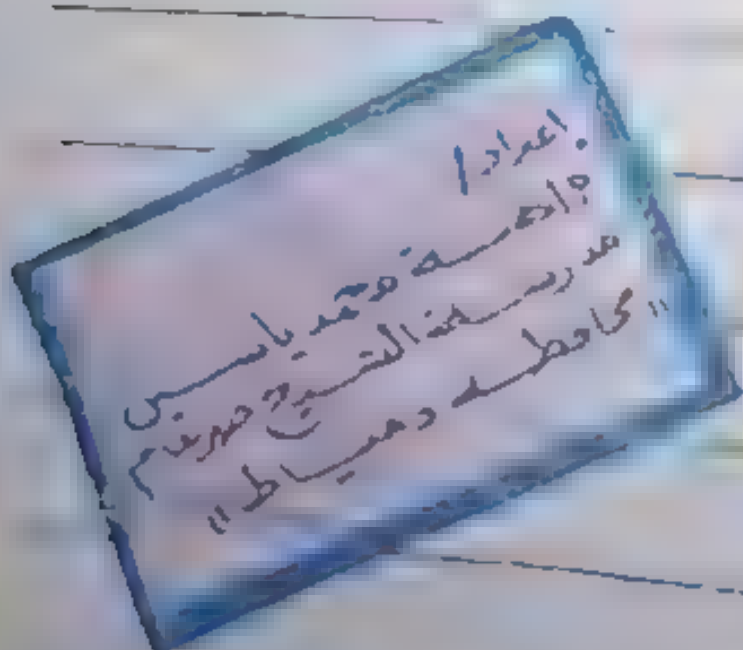 اعداد /
محمد ياسين
مدرسة الشيخ ضرغام
"محافظة دمياط"